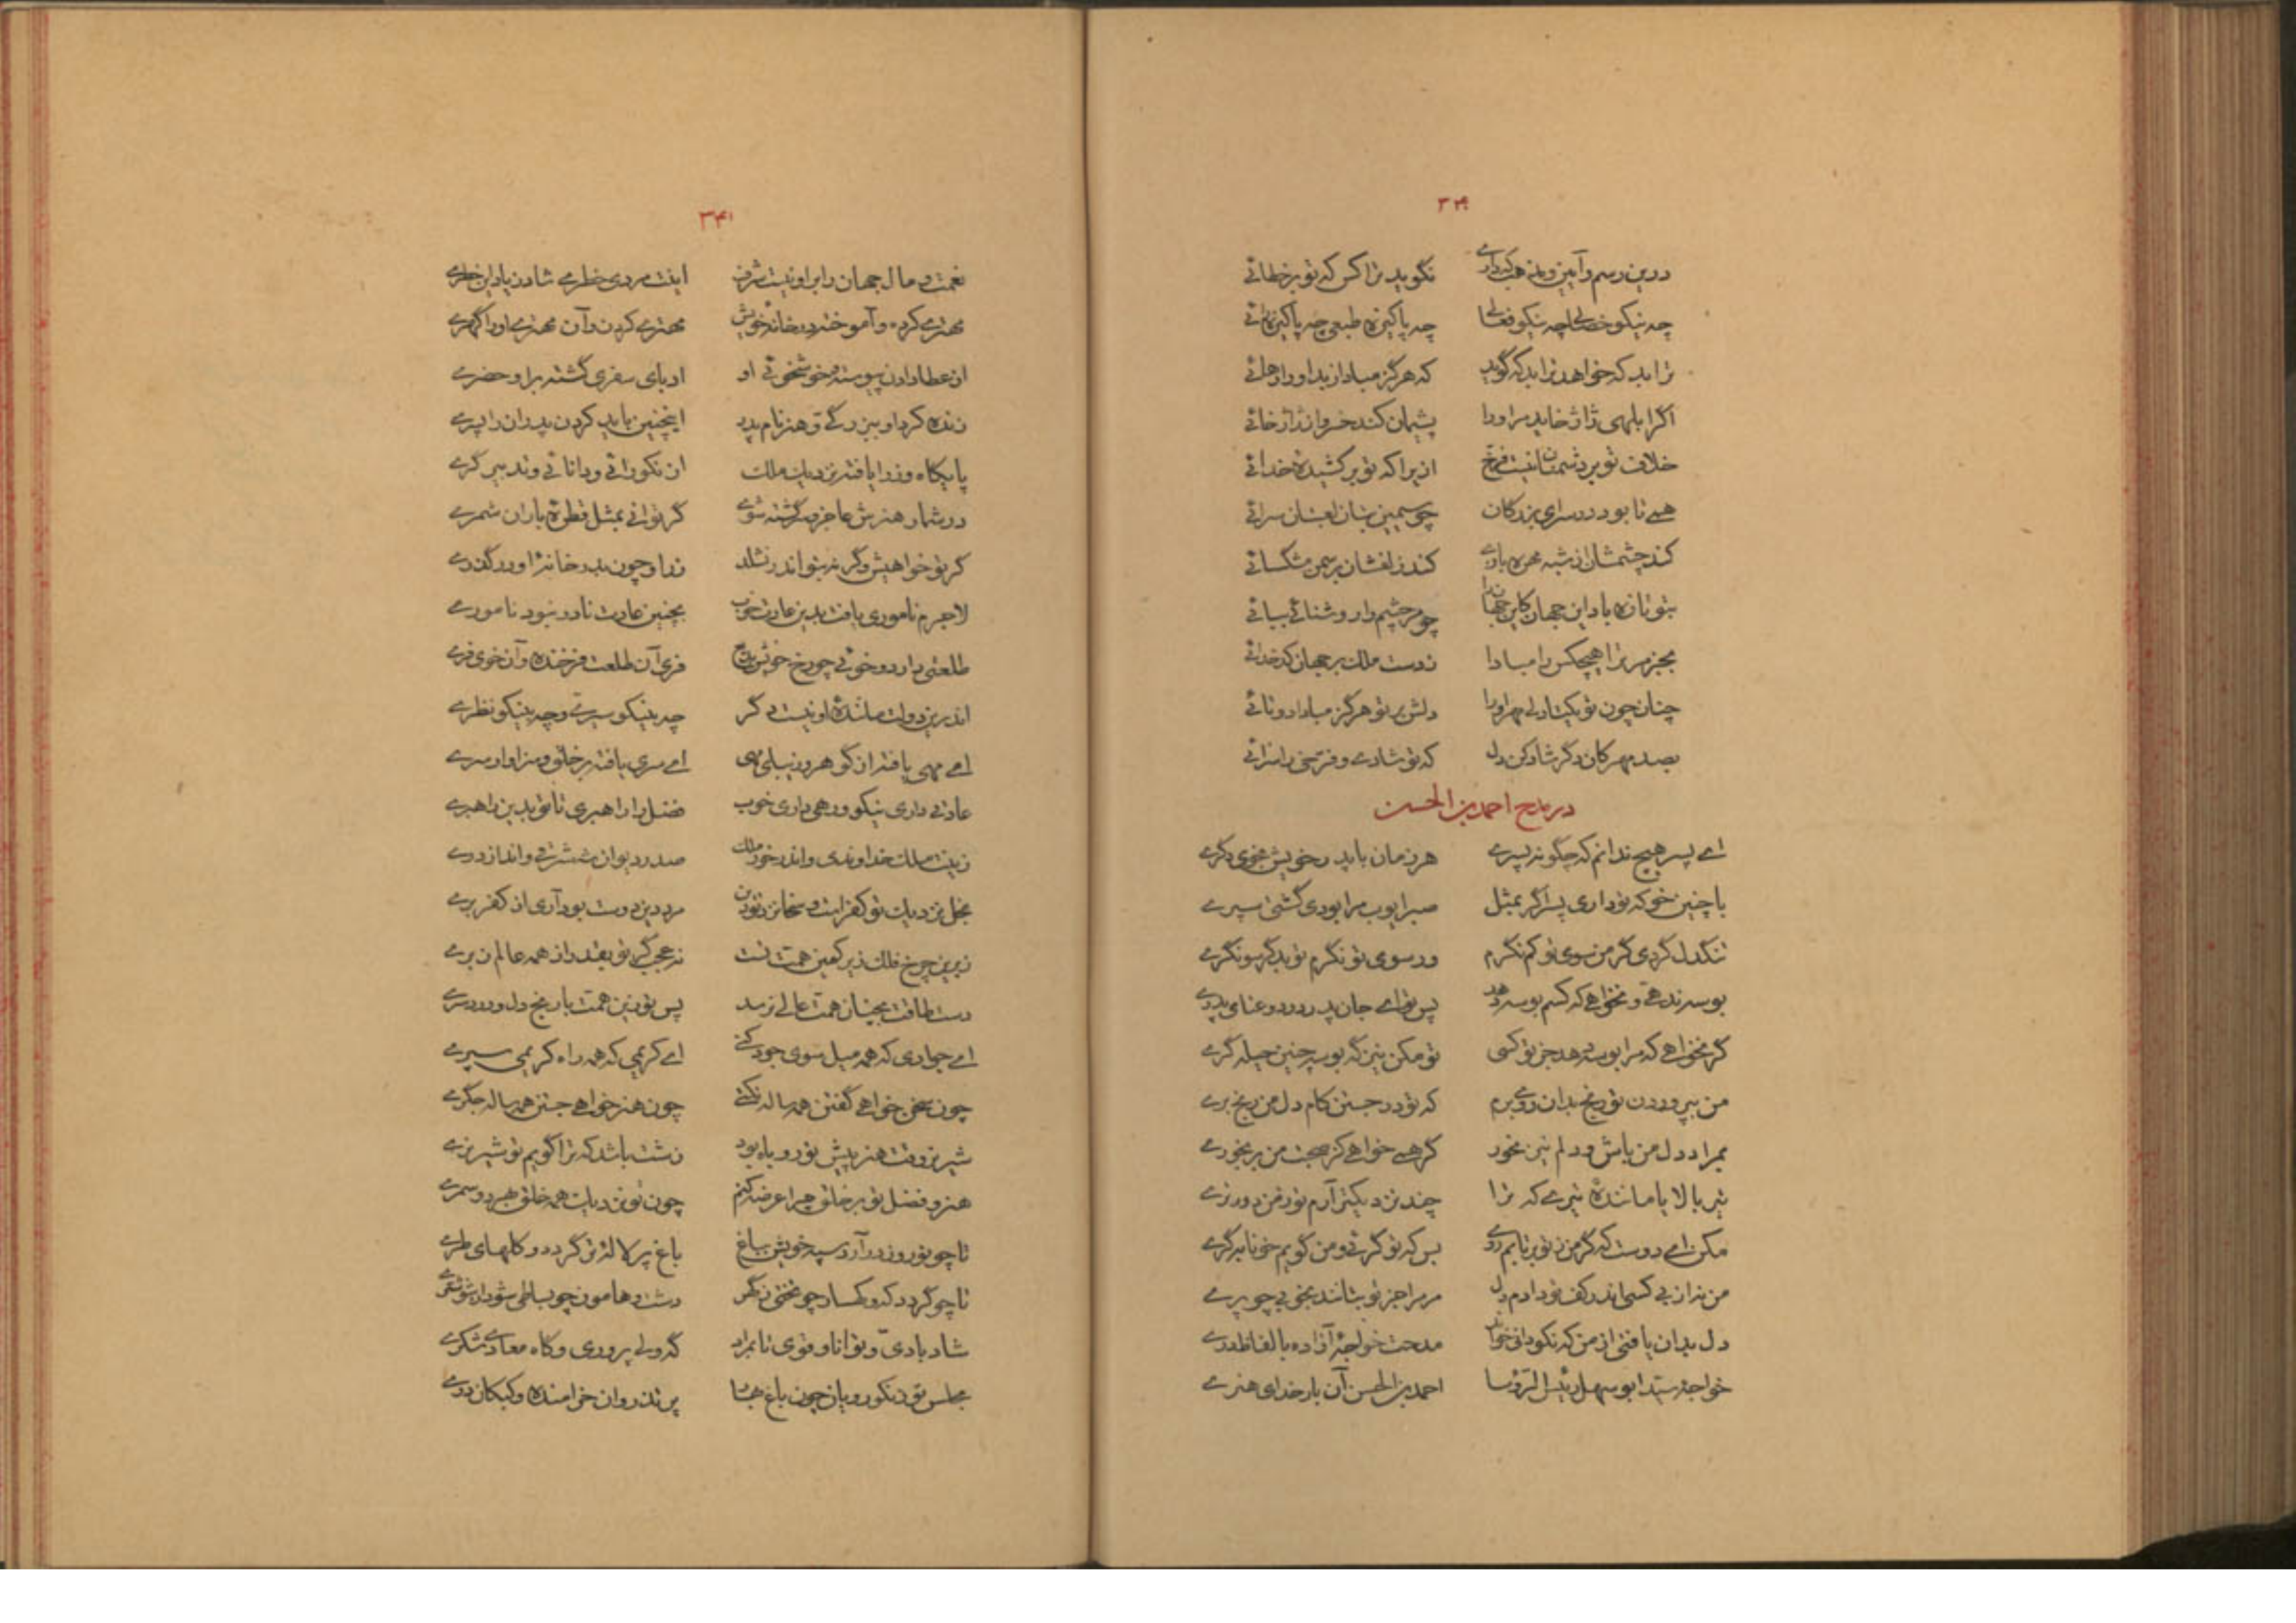 ۳۴۰
درین رسم و آیین و مذهب که داری نگوید ترا کس که تو بر خطائی
چه نیکو خصالی چه نیکو فعالی چه پاکیزه طبعی چه پاکیزه رائی
ترا بد که خواهد ترا بد که گوید که هرگز مباد از بد او را رهائی
اگر ابلهی ژاژ خاید مر او را پشیمان کند خسرو از ژاژخائی
خلاف تو بر دشمنان نیست فرخ ازیرا که تو برکشیدهٔ خدائی
همی تا بود در سرای بزرگان چو سیمین بتان لعبتان سرائی
کند چشمشان از شبه مهره بازی کند زلفشان بر سمن مشکسائی
بتو تازه باد این جهان کاین جهانرا چو مر چشم را روشنائی ببائی
بجز مر ترا هیچکس را مبادا ز دست ملک بر جهان کدخدائی
چنان چون تو یکتا دلی مهر او را دلش بر تو هرگز مبادا دوتائی
بصد مهرکان دگر شاد کن دل که تو شادی و فرخی را سزائی
در مدح احمد بن الحسن
ای پسر هیچ ندانم که چگونه پسری هر زمان باید رخویش بخوی دگری
با چنین خو که تو داری پسرا گر بمثل صبر ایوب مرا بودی گشتی سپری
تنگدل گردی گر من سوی تو کم نگرم ور سوی تو نگرم تو بدگر سو نگری
بوسه ندهی و نخواهی که کسم بوسه دهد پس تو ای جان پدر درد و عنای پدری
گر نخواهی که مرا بوسه دهد جز تو کسی تو مکن نیز گه بوسه چنین حیله گری
من بپروردن تو رنج بدان روی برم که تو در جستن کام دل من رنج بری
بمراد دل من باش و دلم نیز مخور گر همی خواهی کز صحبت من برنخوری
تیر بالا یا مانندهٔ تیری که ترا چند نزدیکتر آرم تو ز من دورتری
مکن ای دوست که گر من ز تو برتابم روی بس که تو گرئی و من گویم خونابه گری
من نه از بی کسی اندر کف تو دادم دل مر مرا جز تو بتانند بخوبی چو پری
دل بدان یافتی از من که نکو دانی خواند مدحت خواجهٔ آزاده بالفاظ دری
خواجه سید ابو سهل رئیس الرؤسا احمد بن الحسن آن بار خدای هنری
۳۴۱
نعمت و مال جهان را بر او نیست شرف اینت مردی خطری شاد زیاد این خطری
مهتری کرده و آموخته در خانهٔ خویش مهتری کردن و آن مهتری او را گهری
از عطا دادن پیوسته و خوشخوئی او ادبای سفری گشته بر او حضری
زنده کرد او ببزرگی و هنر نام پدر اینچنین باید کردن پدران را پسری
پایگاه وزرا یافته نزدیک ملک از نکورائی و دانائی و تدبیر گری
در شمار هنرش عاجز و سرگشته شوی گر توانی بمثل قطرهٔ باران شمری
گر تو خواهیش و گر نه بتو اندر نشاند زر او چون بدر خانهٔ او درگذری
لا جرم ناموری یافت بدین عادت خوب بچنین عادت نادر نبود ناموری
طلعتی دارد و خوئی چو رخ خویش بدیع فری آن طلعت فرخنده و آن خوی فری
اندرین دولت مانندهٔ او نیست دگر چه بنیکو سیری و چه بنیکو نظری
ای مهی یافته از گوهر و نیلی مهی ای سری یافته بر خلق و سزاوار سری
عادتی داری نیکو و رهی داری خوب فضل را راهبری تا تو بدین راهبری
زینت ملک خداوندی و اندر خور ملک صدر دیوان ششرقی و اندازدری
بخل نزدیک تو کفر است و سخا نزد تو دین مرد دین دوست بود آری از کفر بری
زبرین چرخ فلک زیر کهین همت تست نه عجب گر تو بقدر از همه عالم زبری
دست طاقت بچنان همت عالی نرسد پس تو زین همت با رنج دل و دردسری
ای جوادی که همه میل سوی جود کنی ای کریمی که همه راه کریمی سپری
چون سخن خواهی گفتن همه ساله نکنی چون هنر خواهی جستن همه ساله جگری
شیر نر وقت هنر پیش تو روباه بود زشت باشد که ترا گویم تو شیر نری
هنر و فضل تو بر خلق چرا عرضه کنم چون تو نزدیک همه خلق بهر دو سمری
تا چو نوروز درآرد سپه خویش بباغ باغ پر لالهٔ تر گردد و گلهای طری
تا چو گردد که و کهسار چو تختی ز گهر دشت و هامون چو بساطی شود از شوشتری
شاد بادی و توانا و قوی تا بمراد گه ولی پروری و گاه معادی شکری
مجلس تو ز نکورویان چون باغ بهار پر تذروان خرامنده و کبکان دری